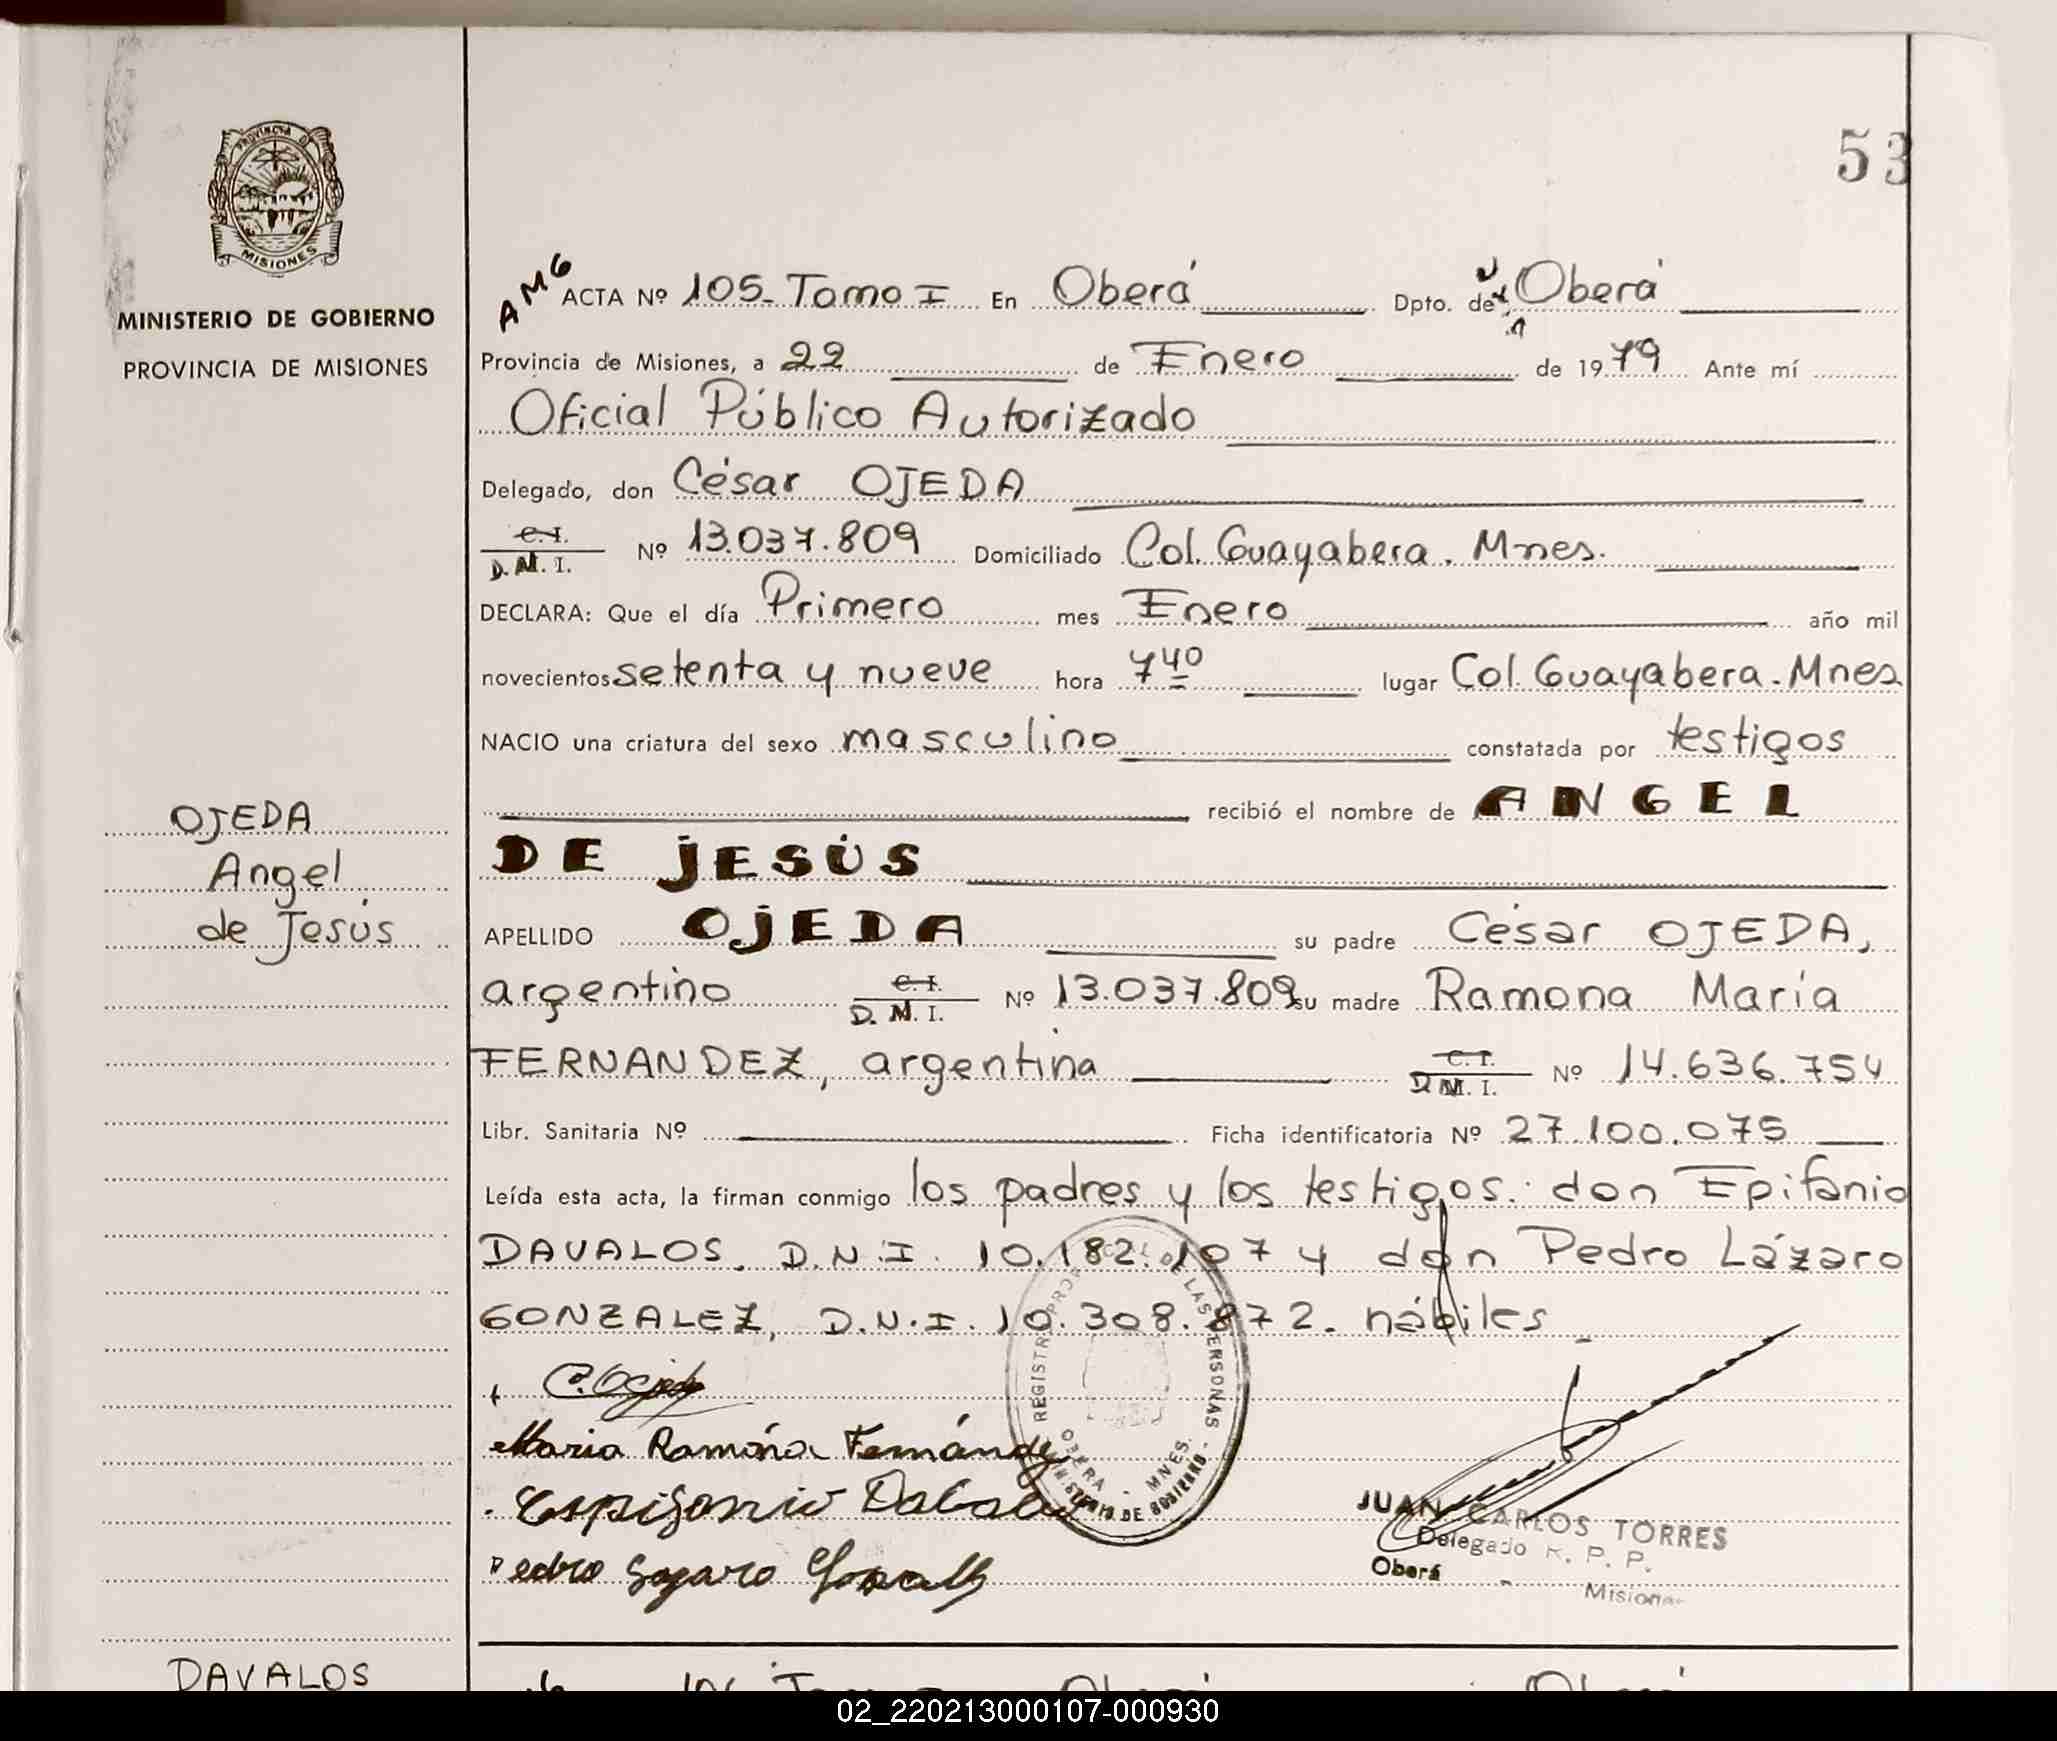 53
PROVINCIA DE
MISIONES
MINISTERIO DE GOBIERNO
PROVINCIA DE MISIONES
OJEDA
Angel
de Jesús
DAVALOS
AMG ACTA Nº 105- Tomo I En Oberá Dpto. de Oberá
Provincia de Misiones, a 22 de Enero de 1979 Ante mí
Oficial Público Autorizado
Delegado, don César OJEDA
C.I. D.M.I. Nº 13.037.809 Domiciliado Col. Guayabera. Mnes.
DECLARA: Que el día Primero mes Enero año mil
novecientos setenta y nueve hora 7 40 lugar Col. Guayabera. Mnes
NACIO una criatura del sexo masculino constatada por testigos
recibió el nombre de ANGEL
DE JESÚS
APELLIDO OJEDA su padre César OJEDA,
argentino C.I. D.M.I. Nº 13.037.809 su madre Ramona María
FERNANDEZ, argentina C.I. D.M.I. Nº 14.636.754
Libr. Sanitaria Nº Ficha identificatoria Nº 27.100.075
Leída esta acta, la firman conmigo los padres y los testigos: don Epifanio
DAVALOS. D.N.I. 10.182.107 y don Pedro Lázaro
GONZALEZ, D.N.I. 10.308.872. hábiles
C. Ojeda
Maria Ramóna Fernández
Pedro
REGISTRO PROVINCIAL DE LAS PERSONAS
OBERA - MNES.
MINISTERIO DE GOBIERNO
JUAN CARLOS TORRES
Delegado R. P. P.
Oberá - Misiones
Oberá Oberá
02_220213000107-000930